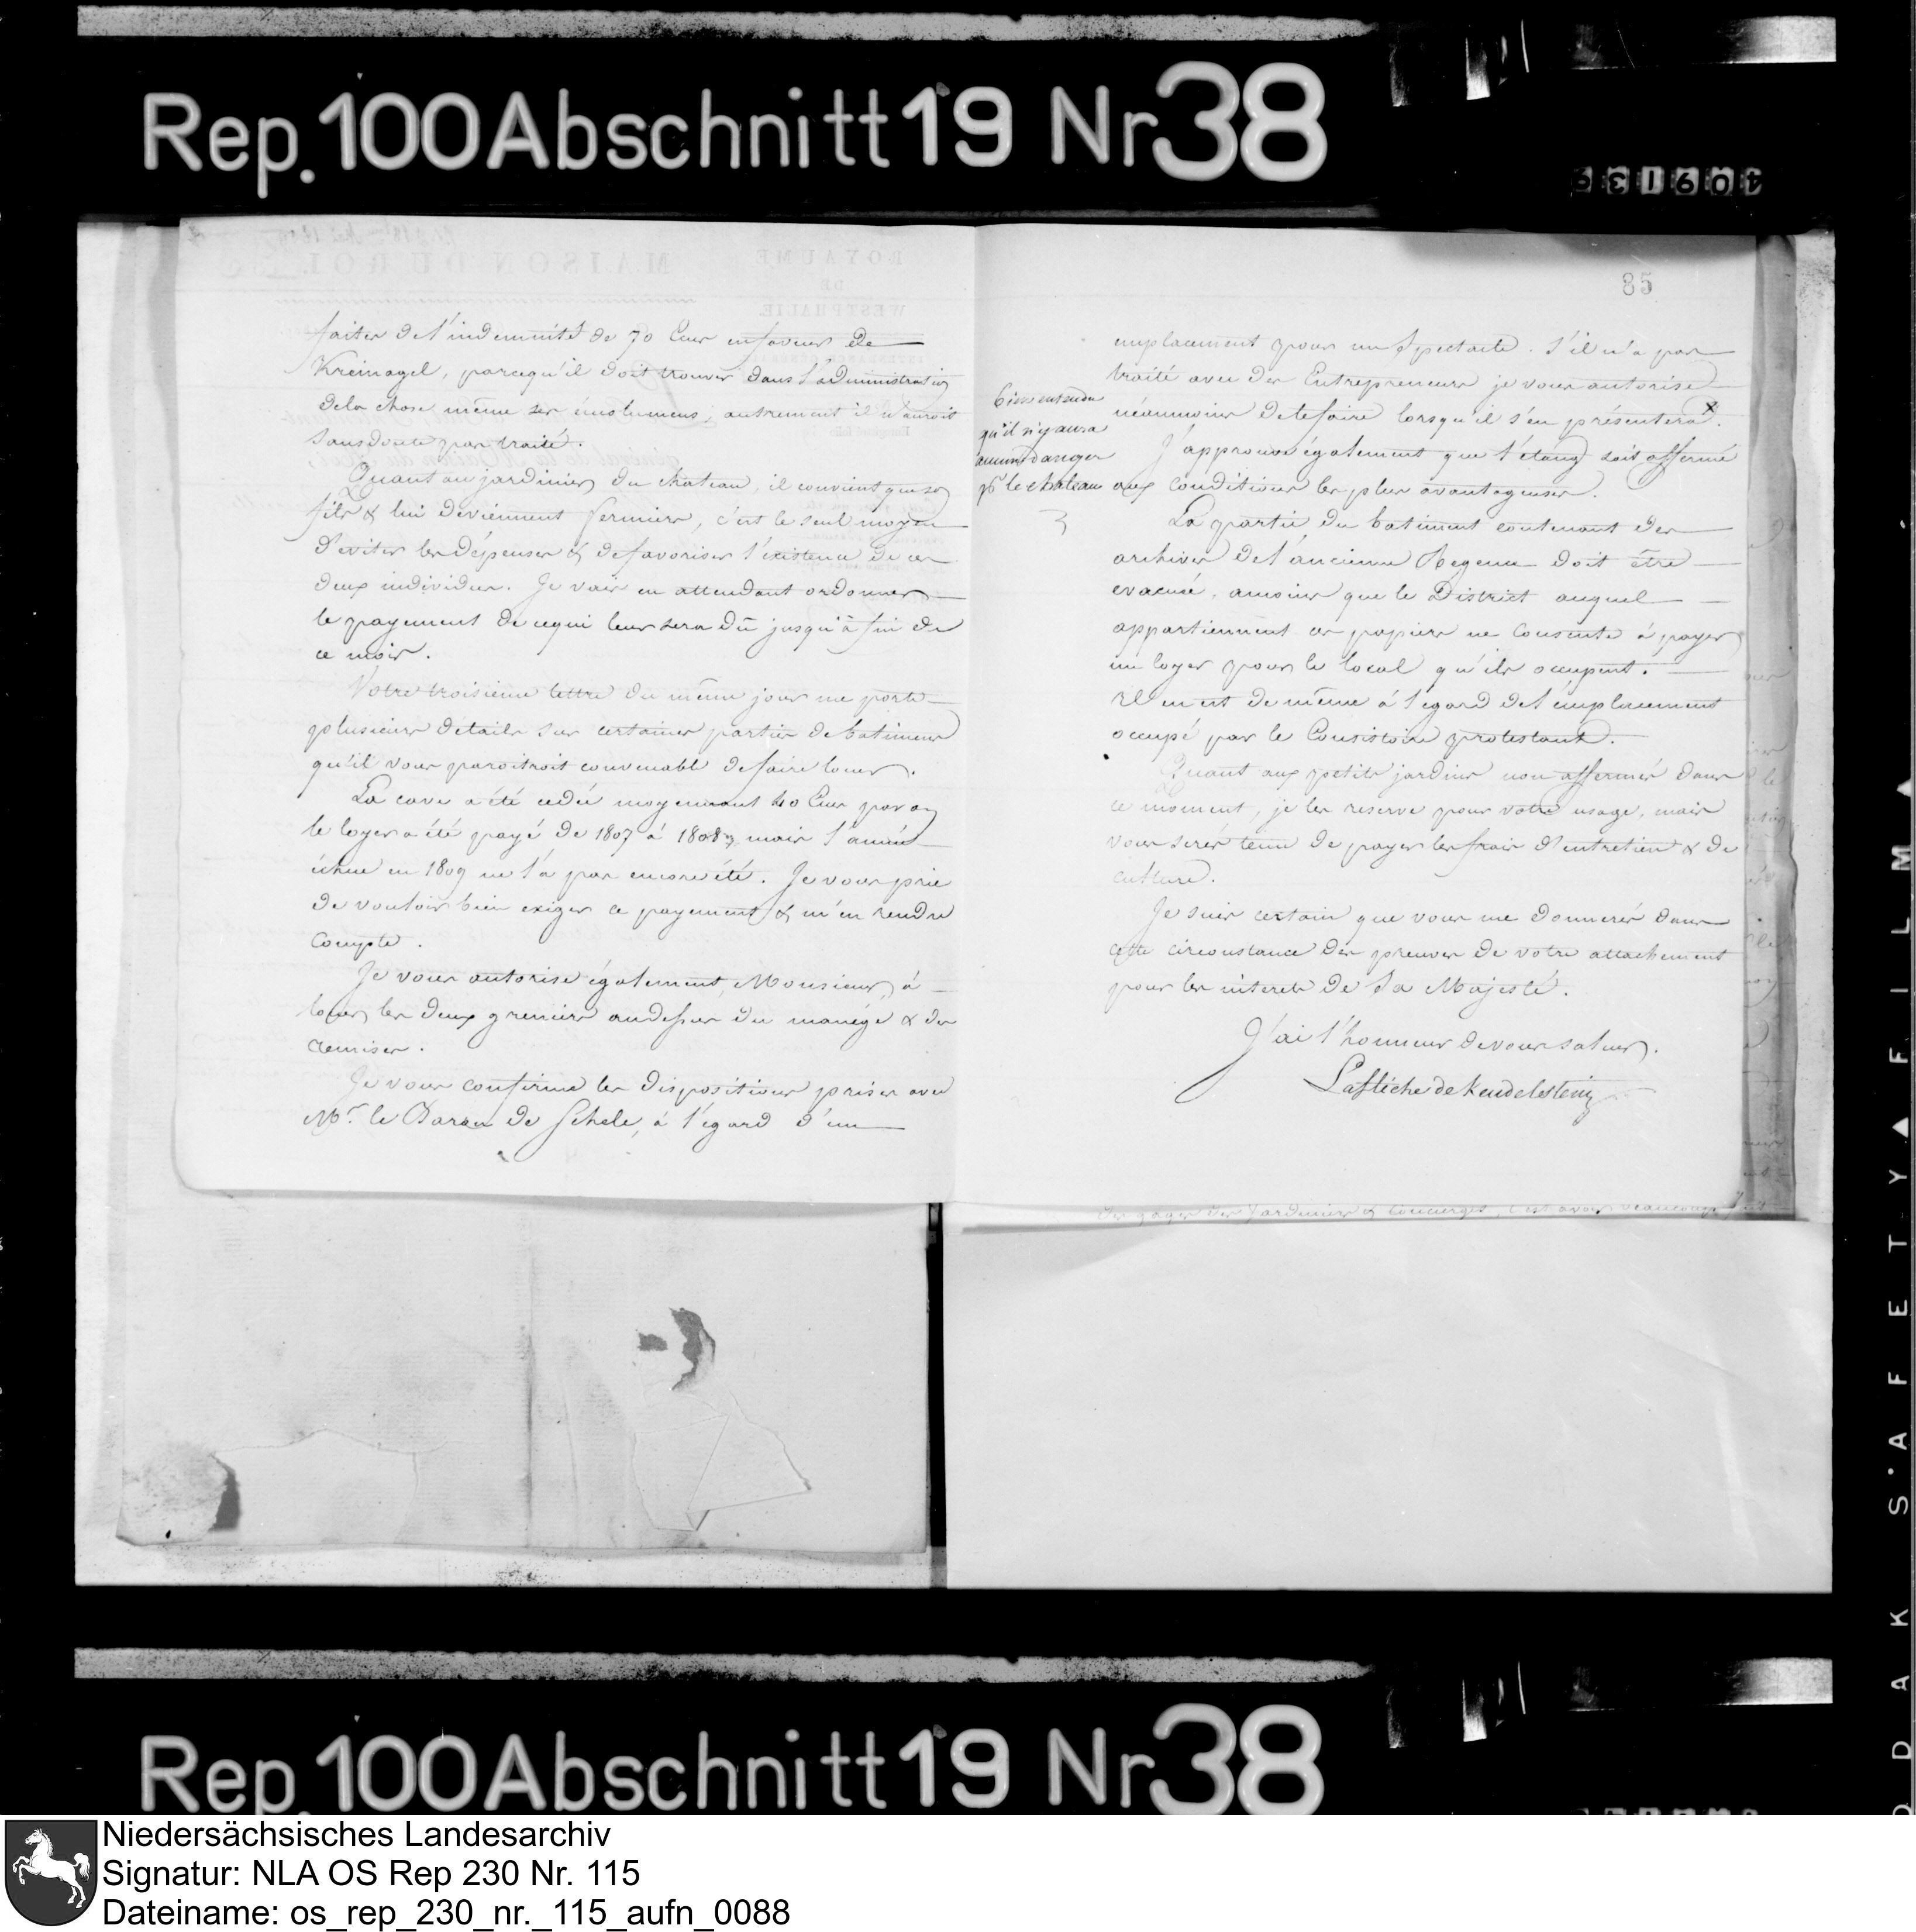 Rep. 100 Abschnitt 19 Nr 38
409139
faites de l'indemnité de 70 Ecus en faveur de
Kreinagel, parcequ'il doit trouver dans l'administration
de la chose même ses émolumens; autrement il n'auroit
sans doute pas traité.
Quant au jardinier du chateau, il convient que son
fils & lui deviennent fermiers, c'est le seul moyen
d'eviter les dépenses & de favoriser l'existence de ces
deux individus. Je vais en attendant ordonner
le payement de ce qui leur sera dû jusqu'à fin de
ce mois.
Votre troisieme lettre du même jour me porte
plusieurs details sur certaines parties de batimens
qu'il vous paroitroit convenable de faire louer.
La cave a été cedée moyennant 40 Ecus par an
le loyer a été payé de 1807 à 1808, mais l'année
échue en 1809 ne l'a pas encore été. Je vous prie
de vouloir bien exiger ce payement & m'en rendre
compte.
Je vous autorise également, Monsieur, à
louer les deux greniers audessus du manége & des
remises.
Je vous confirme les dispositions prises avec
Mr. le Baron de Schele, à l'égard d'un
85
emplacement pour un Spectacle. S'il n'a pas
traité avec des Entrepreneurs je vous autorise
néanmoins de le faire lorsqu'il s'en présentera. x
bien entendu
qu'il n'y aura
aucun danger
pr le chateau
J'approuve également que l'étang soit affermé
aux conditions les plus avantageuses.
La partie du batiment contenant des
archives de l'ancienne Regence doit être
evacuée, amoins que le District auquel
appartiennent ces papiers ne consente à payer
un loyer pour le local qu'ils occupent.
Il en est de même à l'égard de l'emplacement
occupé par le Consistoire protestant.
Quant aux petits jardins non affermés dans
ce moment, je les reserve pour votre usage, mais
vous serés tenu de payer les frais d'entretien & de
culture.
Je suis certain que vous me donnerés dans
cette circonstance des preuves de votre attachement
pour les interets de Sa Majesté.
J'ai l'honneur de vous saluer.
Lafléche de Keudelstein
des gages des Jardiniers & Concierges, c'est avoir beaucoup fait
Rep. 100 Abschnitt 19 Nr 38
KODAK SAFETY FILM
Niedersächsisches Landesarchiv
Signatur: NLA OS Rep 230 Nr. 115
Dateiname: os_rep_230_nr._115_aufn_0088